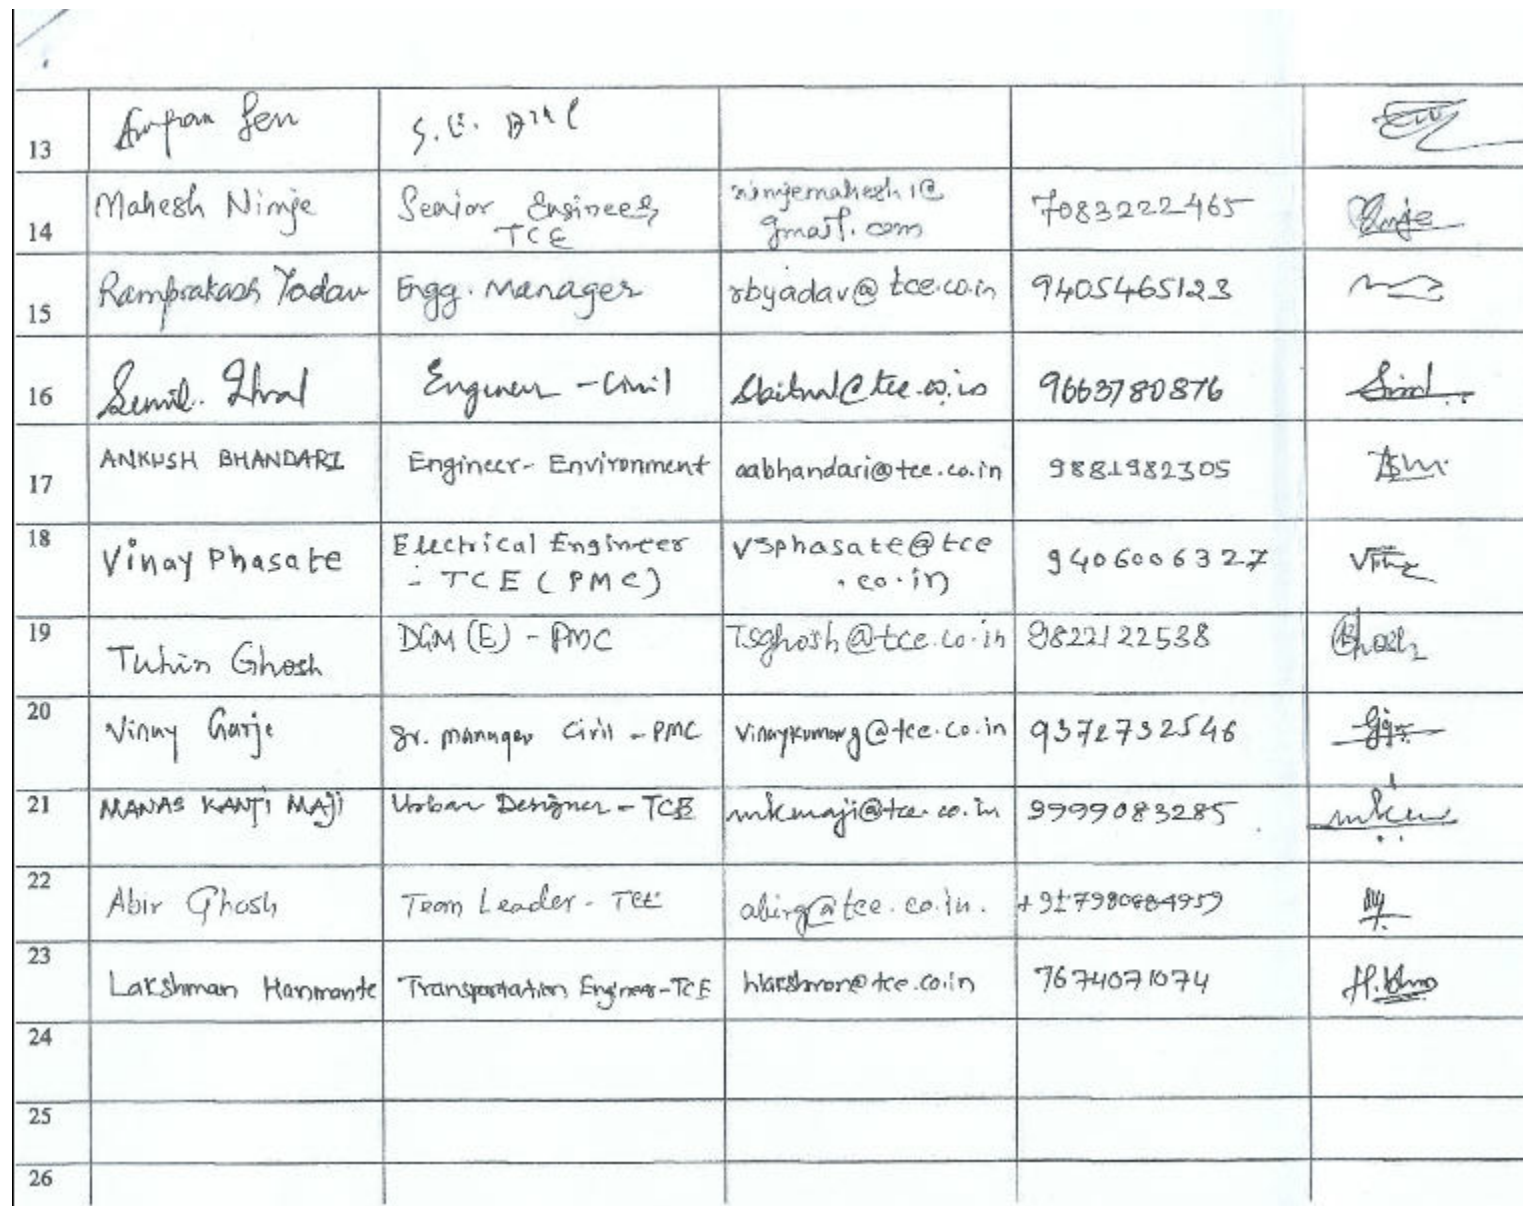 13 Sen S.E.
14 Mahesh Nimje Senior Engineer, nimjemahesh1@ 7083222465
TCE gmail.com
15 Ramprakash Yadav Engg. Manager rbyadav@tce.co.in 9405465123
16 Engineer - Civil 9663780876
17 ANKUSH BHANDARI Engineer- Environment aabhandari@tce.co.in 9881982305
18 Vinay Phasate Electrical Engineer vsphasate@tce 9406006327
- TCE (PMC) .co.in
19 Tuhin Ghosh DGM (E) - PMC Tsghosh@tce.co.in 9822122538
20 Vinay Garje Sr. Manager Civil - PMC Vinaykumarg@tce.co.in 9372732546
21 MANAS KANTI MAJI Urban Designer - TCE mkmaji@tce.co.in 9999083285
22 Abir Ghosh Team Leader - TCE abirg@tce.co.in.
23 Lakshman Hanmante Transportation Engineer-TCE hlakshman@tce.co.in 7674071074
24
25
26